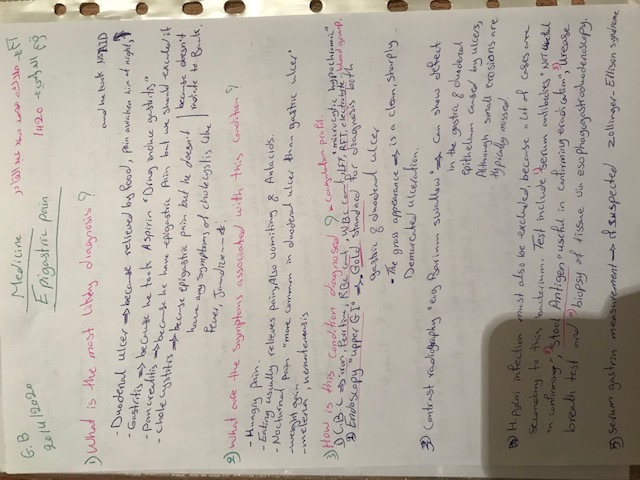 G.B
20/11/2020
Medicine
Epigastric pain
1) What is the most likley diagnosis ?
- Duodenal ulcer → because relieved by food, pain awaken him at night,
and he took NSAID
- Gastritis → because he took Aspirin "Drug induce gastritis"
- Pancreatitis → because he have epigastric pain but we should excluded it
- Cholecystitis → because epigastric pain but he doesn't
have any symptoms of cholecystitis like
fever, Jaundice
because doesn't
radiate to Back.
2) What are the symptoms associated with this condition ?
- Hungry pain.
- Eating usually relieves pain, Also vomiting & Antacids.
- Nocturnal pain "more common in duodenal ulcer than gastric ulcer"
- weight gain
- melena, hematemesis
3) How is this condition diagnosed ?
coagulation profile.
1) C.B.C → iron, Ferritin, RBc count, WBc count, LFT, RFT, electrolyte, blood group.
"microcytic hypochromic"
2) Endoscopy "upper GI" → Gold standard for diagnosis both
gastric & duodenal ulcer
• The gross appearance → is a clean, sharply
Demarcated ulceration.
3) Contrast radiography "eg Barium swallow" → can show defect
in the gastric & duodenal
epithelium caused by ulcers,
Although small erosions are
typically missed
4) H.Pylori infection must also be excluded, because a lot of cases are
secondary to this bacterium. Test include serum antibodies "NOT useful
in confirming", Stool Antigen "useful in confirming eradication", urease
breath test and biopsy of tissue via esophagogastroduodenoscopy.
5) serum gastrin measurement → if suspected Zollinger-Ellison syndrome